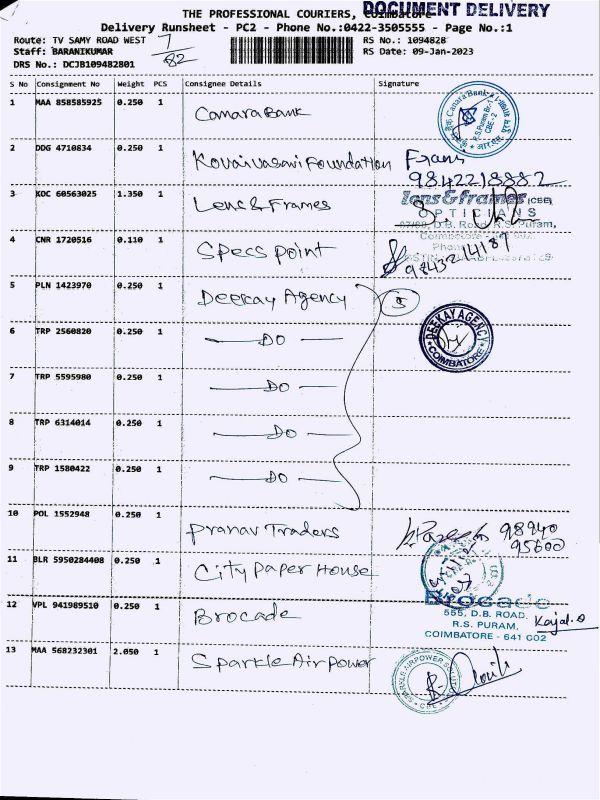 THE PROFESSIONAL COURIERS, Coimbatore
DOCUMENT DELIVERY
Delivery Runsheet - PC2 - Phone No.:0422-3505555 - Page No.:1
Route: TV SAMY ROAD WEST 7/82 RS No.: 1094828
Staff: BARANIKUMAR RS Date: 09-Jan-2023
DRS No.: DCJB109482801
S No Consignment No Weight PCS Consignee Details Signature
1 MAA 858585925 0.250 1 Canara Bank
Canara Bank
R.S. Puram Br.-1
CBE - 2
2 DDG 4710834 0.250 1 Kovaivasavi Foundation
9842218882
3 KOC 60563025 1.350 1 Lens & Frames
lens & frames (CBE)
OPTICIANS
D.B. Road, R.S. Puram,
4 CNR 1720516 0.110 1 Specs Point
9843214187
5 PLN 1423970 0.250 1 Deekay Agency 5
DEEKAY AGENCY
COIMBATORE
6 TRP 2560820 0.250 1 — DO —
7 TRP 5595980 0.250 1 — DO —
8 TRP 6314014 0.250 1 — DO —
9 TRP 1580422 0.250 1 — DO —
10 POL 1552948 0.250 1 Pranav Traders
98940
95600
11 BLR 5950284408 0.250 1 City Paper House
12 VPL 941989510 0.250 1 Brocade
Brocade
555, D.B. ROAD,
R.S. PURAM,
COIMBATORE - 641 002
Kajal.
13 MAA 568232301 2.050 1 Sparkle Air Power
SPARKLE AIRPOWER
CBE